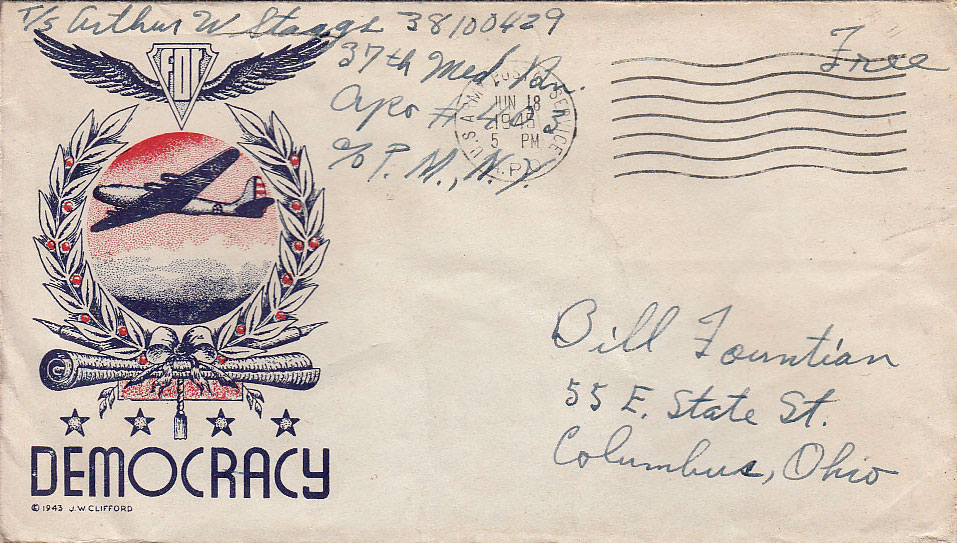 T/5 Arthur W Staggs 38100429
37th Med. Bn.
Apo #
c/o P.M., N.Y.
Free
U.S. ARMY POSTAL SERVICE
JUN 18
1943
5 PM
A.P.
FOR
Bill Fountian
55 E. State St.
Columbus, Ohio
DEMOCRACY
© 1943 J.W. CLIFFORD